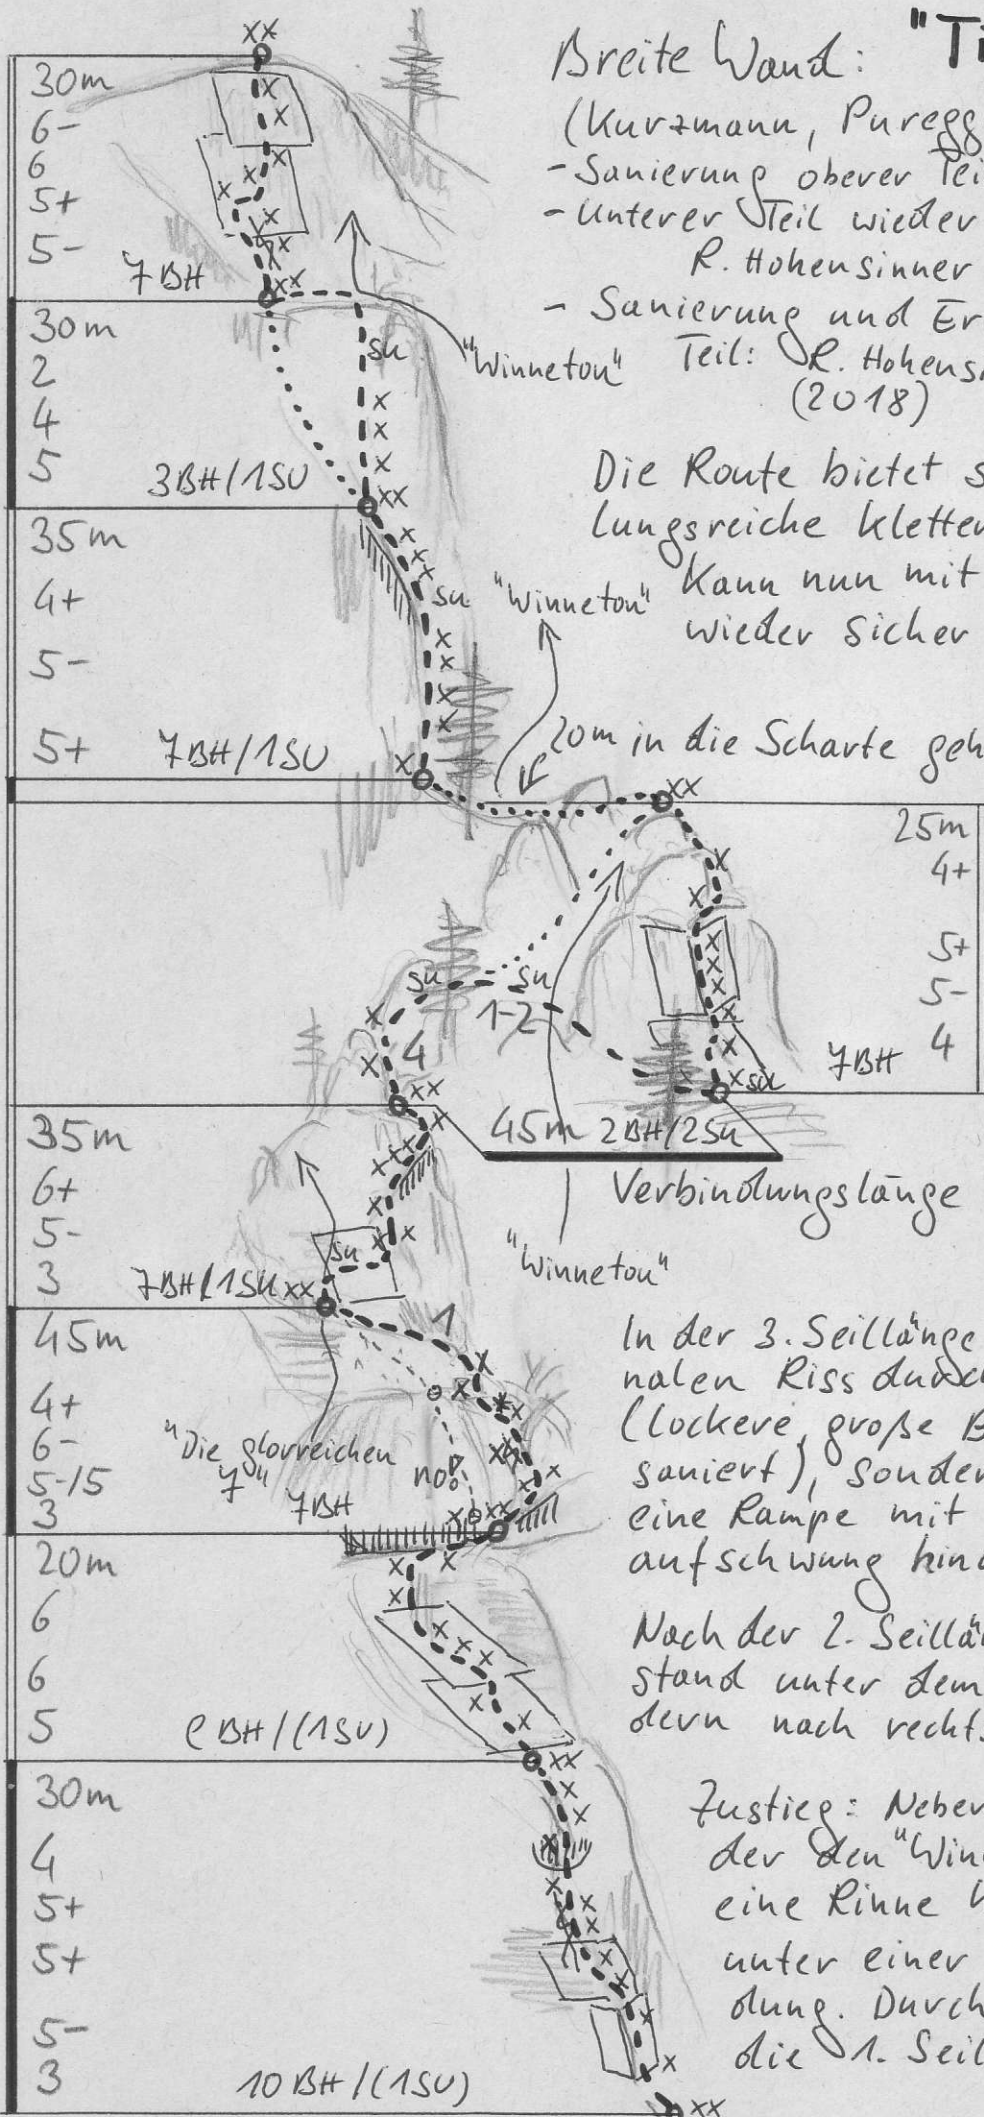 "Ti
Breite Wand:
(Kurzmann, Puregg
- Sanierung oberer Tei
- Unterer Teil wieder
R. Hohensinner
- Sanierung und Er
Teil: R. Hohens
(2018)
Die Route bietet s
lungsreiche kletter
Kann nun mit
wieder sicher
20m in die Scharte geh
xx
30m
6-
6
5+
5-
7BH
xx
"Winnetou"
30m
2
4
5
su
3BH/1SU
xx
35m
4+
5-
5+
su
"Winnetou"
7BH/1SU
xx
25m
4+
5+
5-
4
7BH
su
su
su
1-2
1
4
xx
45m 2BH/2Su
Verbindungslänge
"Winnetou"
35m
6+
5-
3
su
7BH/1SU xx
45m
4+
6-
5-/5
3
1
"Die glorreichen
7"
7BH
no!
xx
In der 3. Seillänge
nalen Riss durch
(lockere, große B
saniert), sonder
eine Rampe mit
aufschwung hina
20m
6
6
5
BH/(1SU)
xx
Nach der 2. Seillä
stand unter dem
dern nach recht
30m
4
5+
5+
5-
3
10BH/(1SU)
xx
Zustieg: Neben
der den "Win
eine Rinne
unter einer
dung. Durch
die 1. Seil